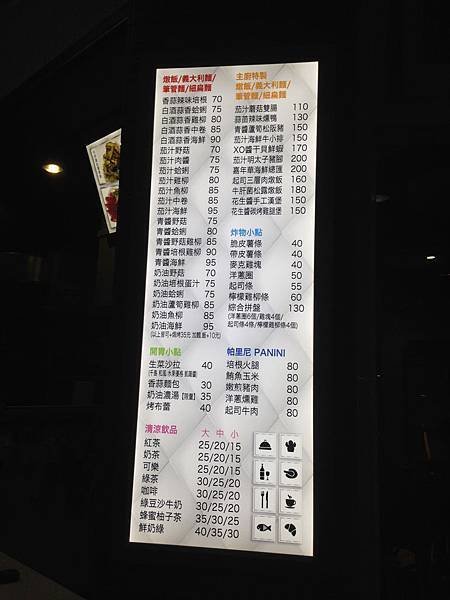 燉飯/義大利麵/
筆管麵/細扁麵
香蒜辣味培根 70
白酒蒜香蛤蜊 75
白酒蒜香雞柳 80
白酒蒜香中卷 85
白酒蒜香海鮮 90
茄汁野菇 70
茄汁肉醬 75
茄汁蛤蜊 75
茄汁雞柳 80
茄汁魚柳 85
茄汁中卷 85
茄汁海鮮 95
青醬野菇 75
青醬蛤蜊 80
青醬野菇雞柳 85
青醬培根雞柳 90
青醬海鮮 95
奶油野菇 70
奶油培根蛋汁 75
奶油蛤蜊 75
奶油蘆筍雞柳 85
奶油魚柳 85
奶油海鮮 95
(以上皆可+焗烤35元 加麵.飯+10元)
開胃小點
生菜沙拉 40
香蒜麵包 30
奶油濃湯【限量】 35
烤布蕾 40
清涼飲品 大 中 小
紅茶 25/20/15
奶茶 25/20/15
可樂 25/20/15
綠茶 30/25/20
咖啡 30/25/20
綠豆沙牛奶 30/25/20
蜂蜜柚子茶 35/30/25
鮮奶綠 40/35/30
主廚特製
燉飯/義大利麵/
筆管麵/細扁麵
茄汁蘑菇雙腸 110
蒜苗辣味燻鴨 130
青醬蘆筍松阪豬 150
茄汁海鮮牛小排 150
XO醬干貝鮮蝦 170
茄汁明太子豬腳 200
嘉年華海鮮總匯 200
起司三層肉燉飯 160
牛肝菌松露燉飯 180
花生醬手工漢堡 150
花生醬碳烤雞腿堡 150
炸物小點
脆皮薯條 40
帶皮薯條 40
麥克雞塊 40
洋蔥圈 50
起司條 55
檸檬雞柳條 60
綜合拼盤 130
(洋蔥圈6個/雞塊4個/
起司條4條/檸檬雞柳條4個)
帕里尼 PANINI
培根火腿 80
鮪魚玉米 80
嫩煎豬肉 80
洋蔥燻雞 80
起司牛肉 80